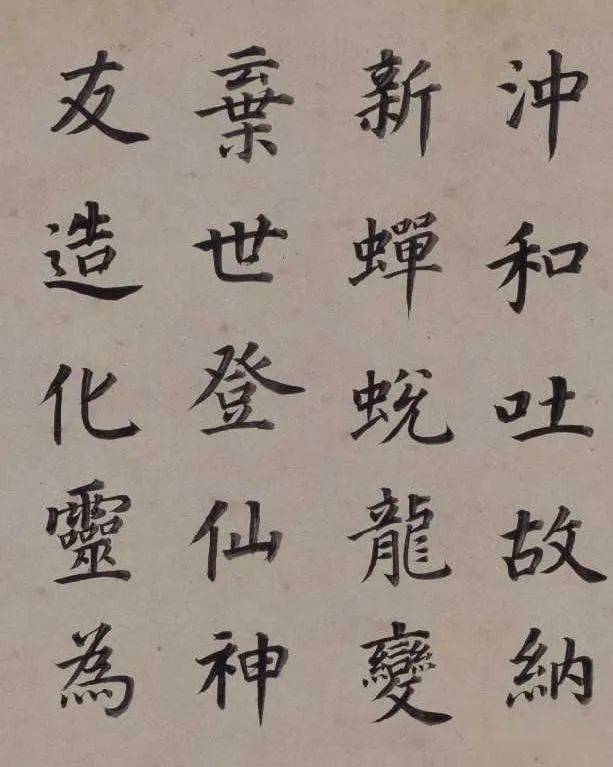 沖和吐故納
新蟬蛻龍變
棄世登仙神
友造化靈為